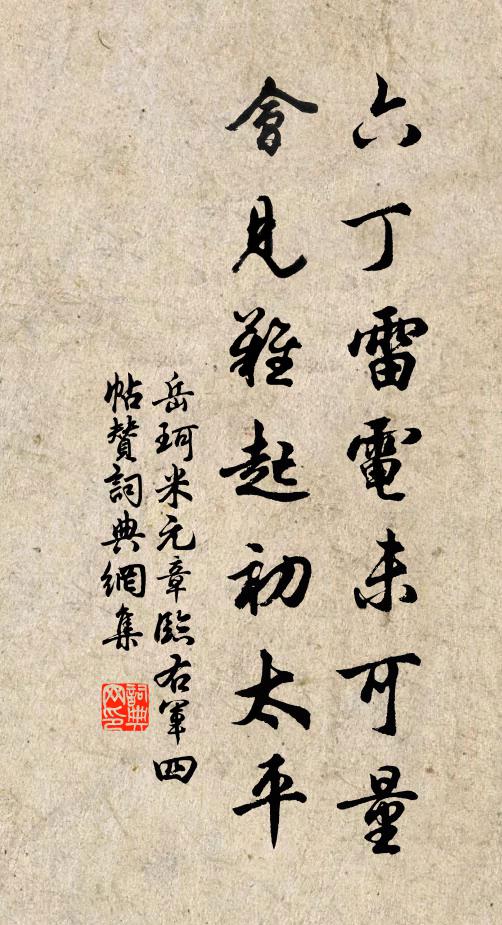 六丁雷電未可量
會見難起初太平
岳珂米元章臨右軍四
帖贊詞典網集
詞典
网印